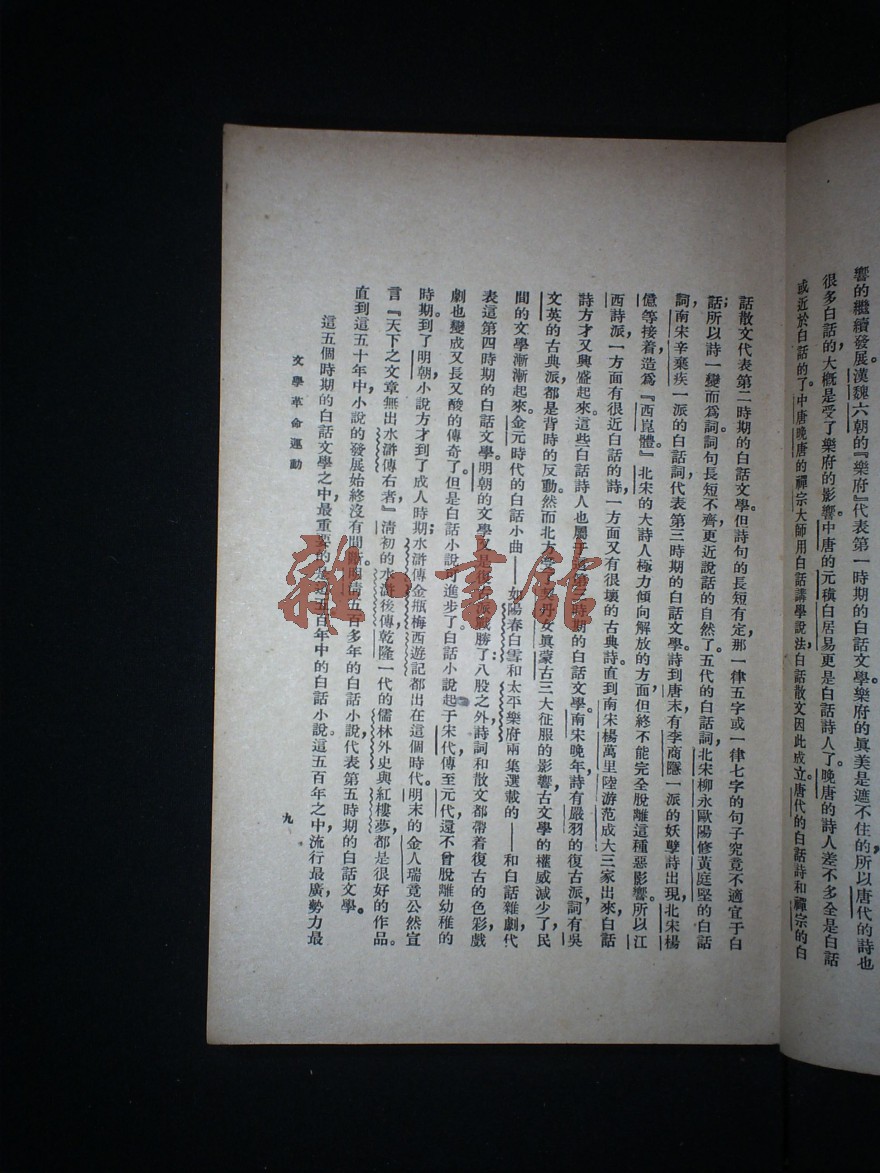 響的繼續發展。漢魏六朝的『樂府』代表第一時期的白話文學。樂府的眞美是遮不住的,所以唐代的詩也
很多白話的,大概是受了樂府的影響。中唐的元稹白居易更是白話詩人了。晚唐的詩人差不多全是白話
或近於白話的了。中唐晚唐的禪宗大師用白話講學說法,白話散文因此成立。唐代的白話詩和禪宗的白
話散文代表第二時期的白話文學。但詩句的長短有定,那一律五字或一律七字的句子究竟不適宜于白
話;所以詩一變而爲詞。詞句長短不齊,更近說話的自然了。五代的白話詞,北宋柳永歐陽修黃庭堅的白話
詞,南宋辛棄疾一派的白話詞,代表第三時期的白話文學。詩到唐末,有李商隱一派的妖孽詩出現,北宋楊
億等接着,造爲『西崑體』。北宋的大詩人極力傾向解放的方面,但終不能完全脫離這種惡影響。所以江
西詩派,一方面有很近白話的詩,一方面又有很壞的古典詩。直到南宋楊萬里陸游范成大三家出來,白話
詩方才又興盛起來。這些白話詩人也屬于這第三時期的白話文學。南宋晚年,詩有嚴羽的復古派,詞有吳
文英的古典派,都是背時的反動。然而北方受了契丹女眞蒙古三大征服的影響,古文學的權威減少了,民
間的文學漸漸起來。金元時代的白話小曲——如陽春白雪和太平樂府兩集選載的——和白話雜劇,代
表這第四時期的白話文學。明朝的文學又是復古派戰勝了;八股之外,詩詞和散文都帶着復古的色彩,戲
劇也變成又長又酸的傳奇了。但是白話小說可進步了。白話小說起于宋代,傳至元代,還不曾脫離幼稚的
時期。到了明朝,小說方才到了成人時期;水滸傳金瓶梅西遊記都出在這個時代。明末的金人瑞竟公然宣
言『天下之文章無出水滸傳右者』,清初的水滸後傳,乾隆一代的儒林外史與紅樓夢,都是很好的作品。
直到這五十年中,小說的發展始終沒有間斷。明清五百多年的白話小說,代表第五時期的白話文學。
這五個時期的白話文學之中,最重要的是這五百年中的白話小說。這五百年之中,流行最廣,勢力最
文學革命運動
九
雜·書館